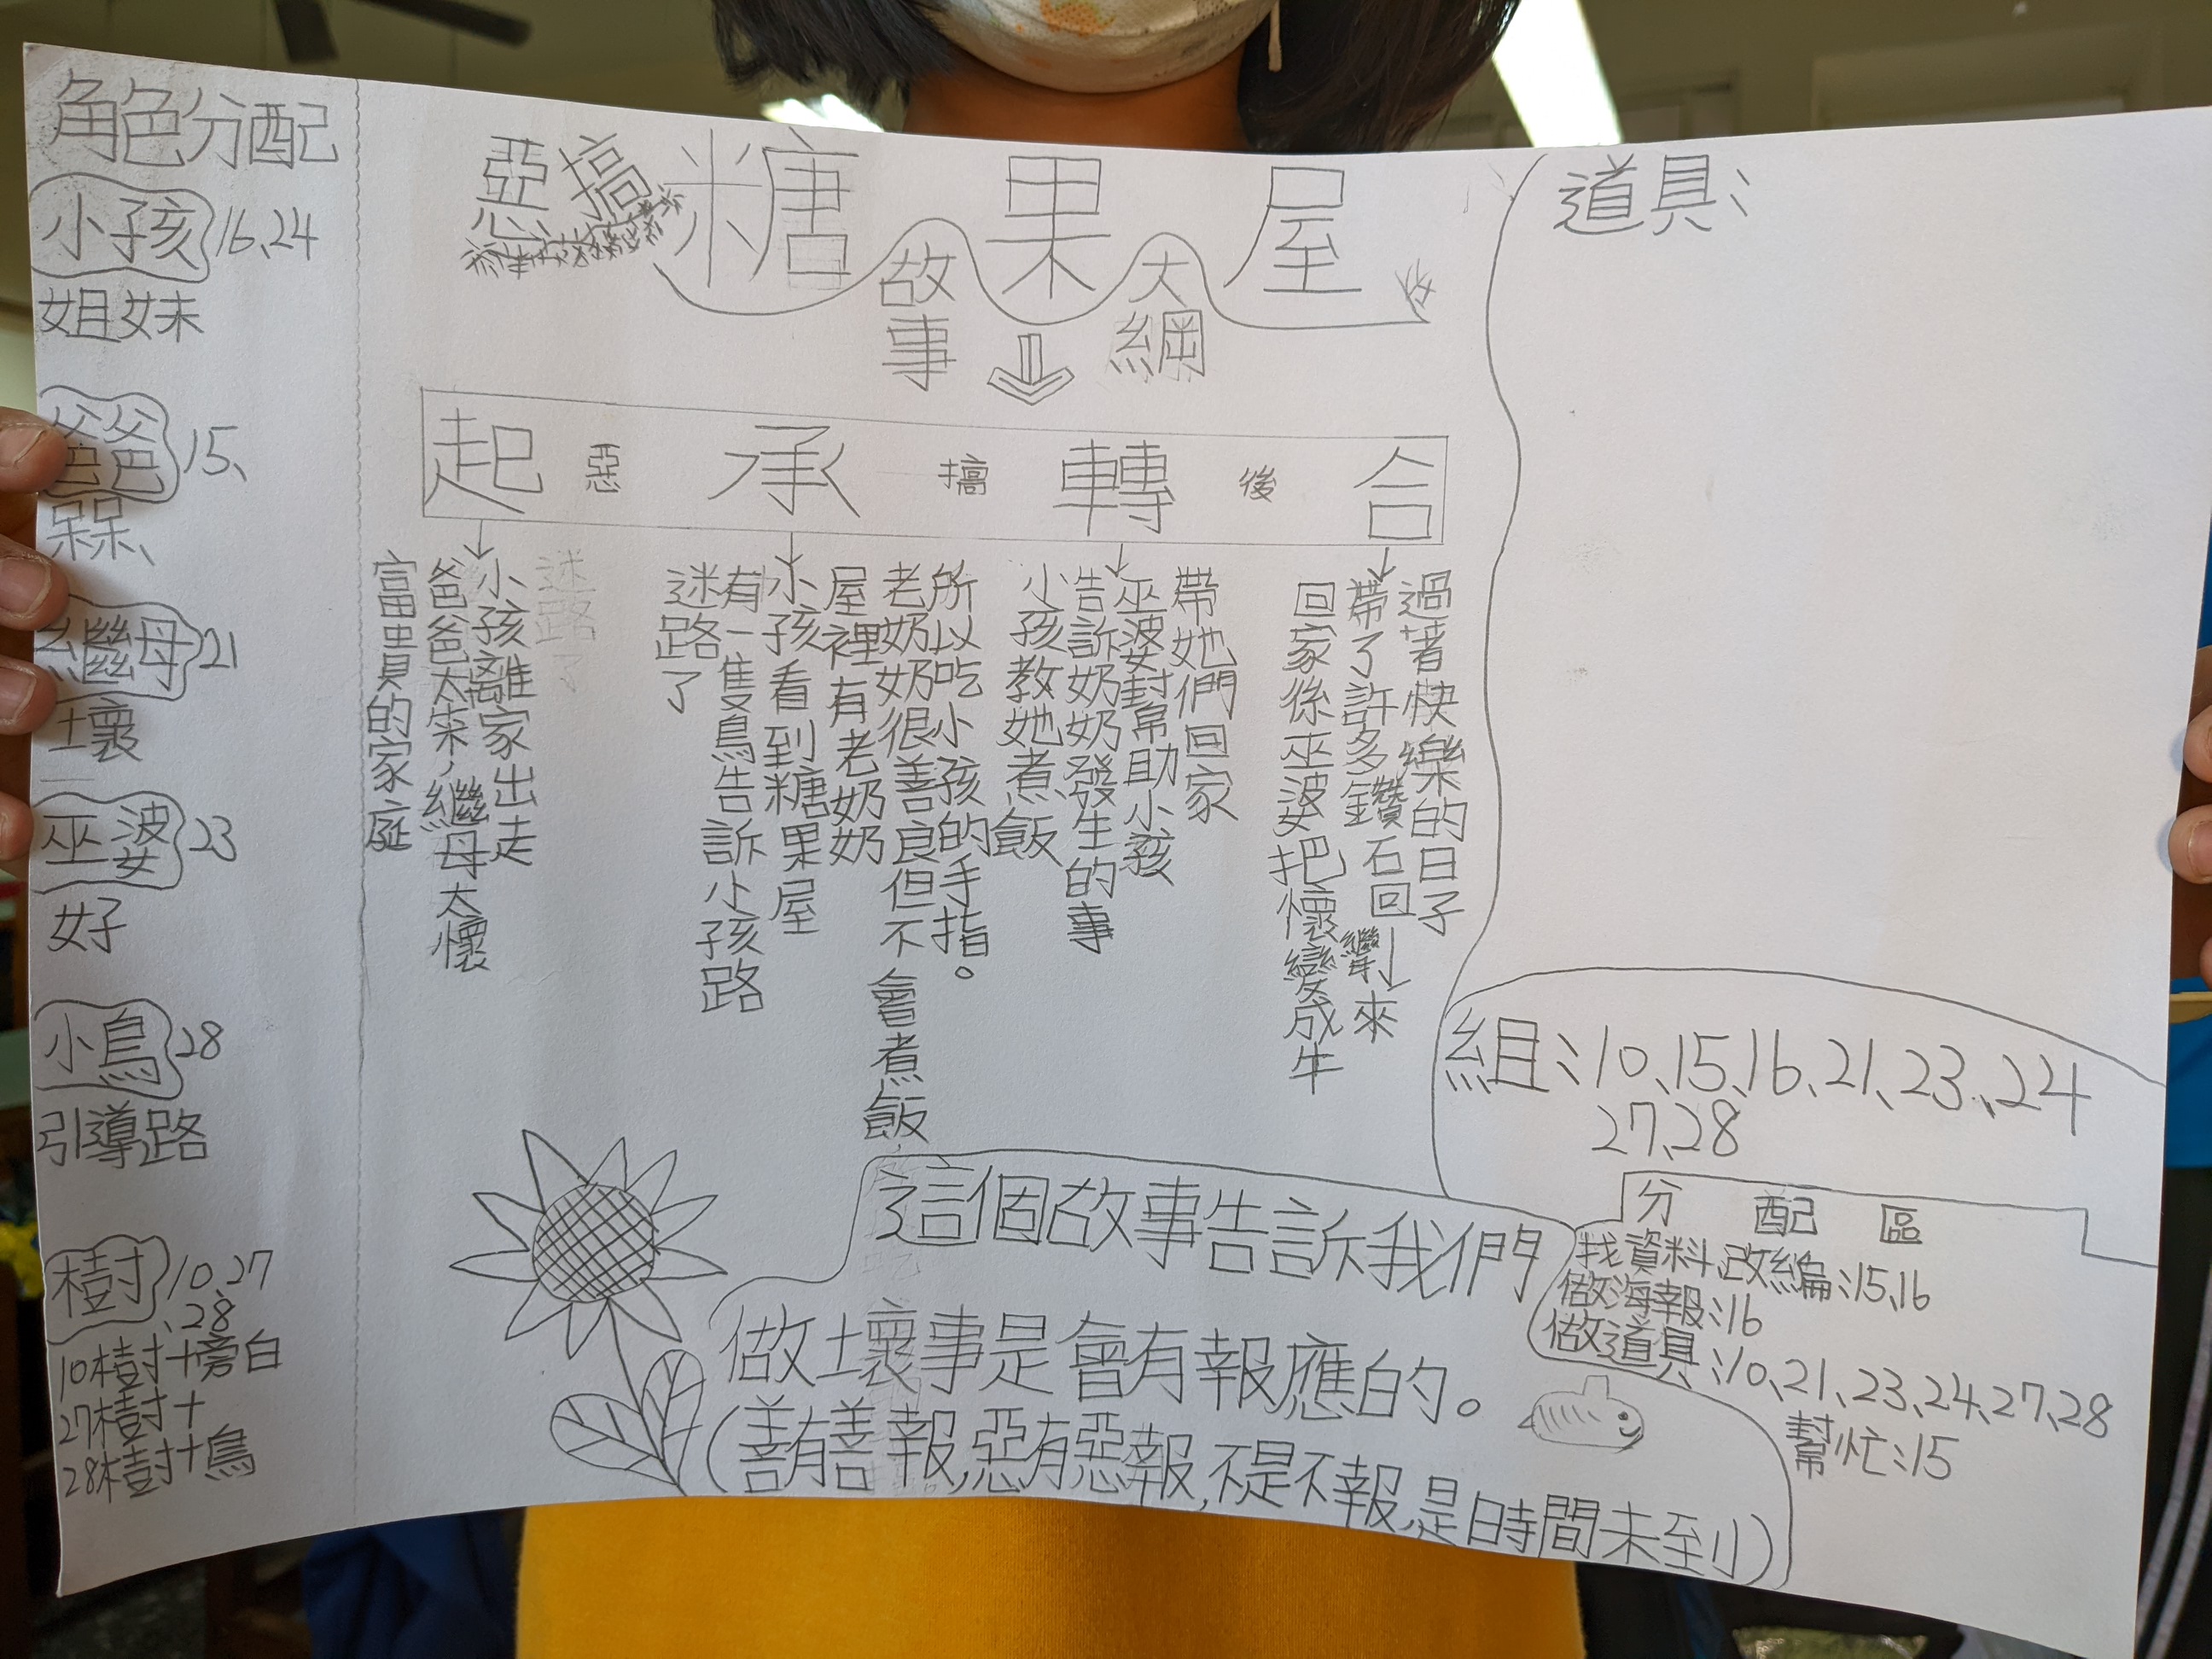 角色分配
小孩 16、24
姐妹
爸爸 15、
呆呆、
繼母 21
壞
巫婆 23
好
小鳥 28
引導路
樹 10、27
、28
10樹+旁白
27樹+
28樹+鳥
惡搞糖果屋
故事大綱
起惡承搞轉後合
富貴的家庭
爸爸太呆，繼母太懷
小孩離家出走
迷路了
迷路了
有一隻鳥告訴小孩路
小孩看到糖果屋
屋裡有老奶奶
老奶奶很善良但不會煮飯，
所以吃小孩的手指。
小孩教她煮飯
告訴奶奶發生的事
巫婆幫助小孩
帶她們回家
回家後巫婆把懷變成牛
繼
帶了許多鑽石回來
過著快樂的日子
道具：
組：10、15、16、21、23、24
27、28
分配區
找資料、改編：15、16
做海報：16
做道具：10、21、23、24、27、28
幫忙：15
這個故事告訴我們
做壞事是會有報應的。
(善有善報，惡有惡報，不是不報，是時間未到)